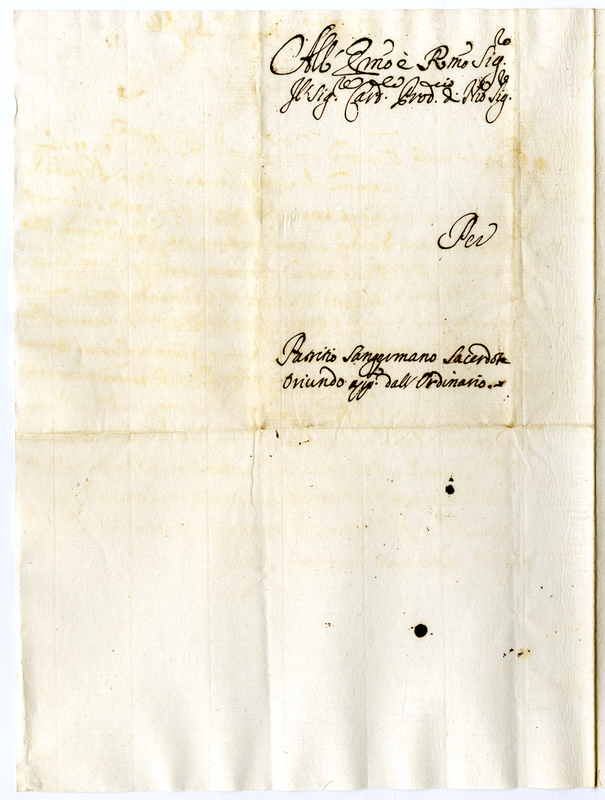 All' Emo è Rmo Sigre
Il Sigr Card. Prod. di Nro Sigre
Per
Patritio Sanguinano Sacerdote
Oriundo app.to dall' Ordinario